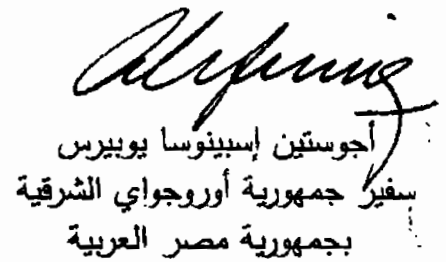 أجوستين إسبينوسا يوبيرس
سفير جمهورية أوروجواي الشرقية
بجمهورية مصر العربية